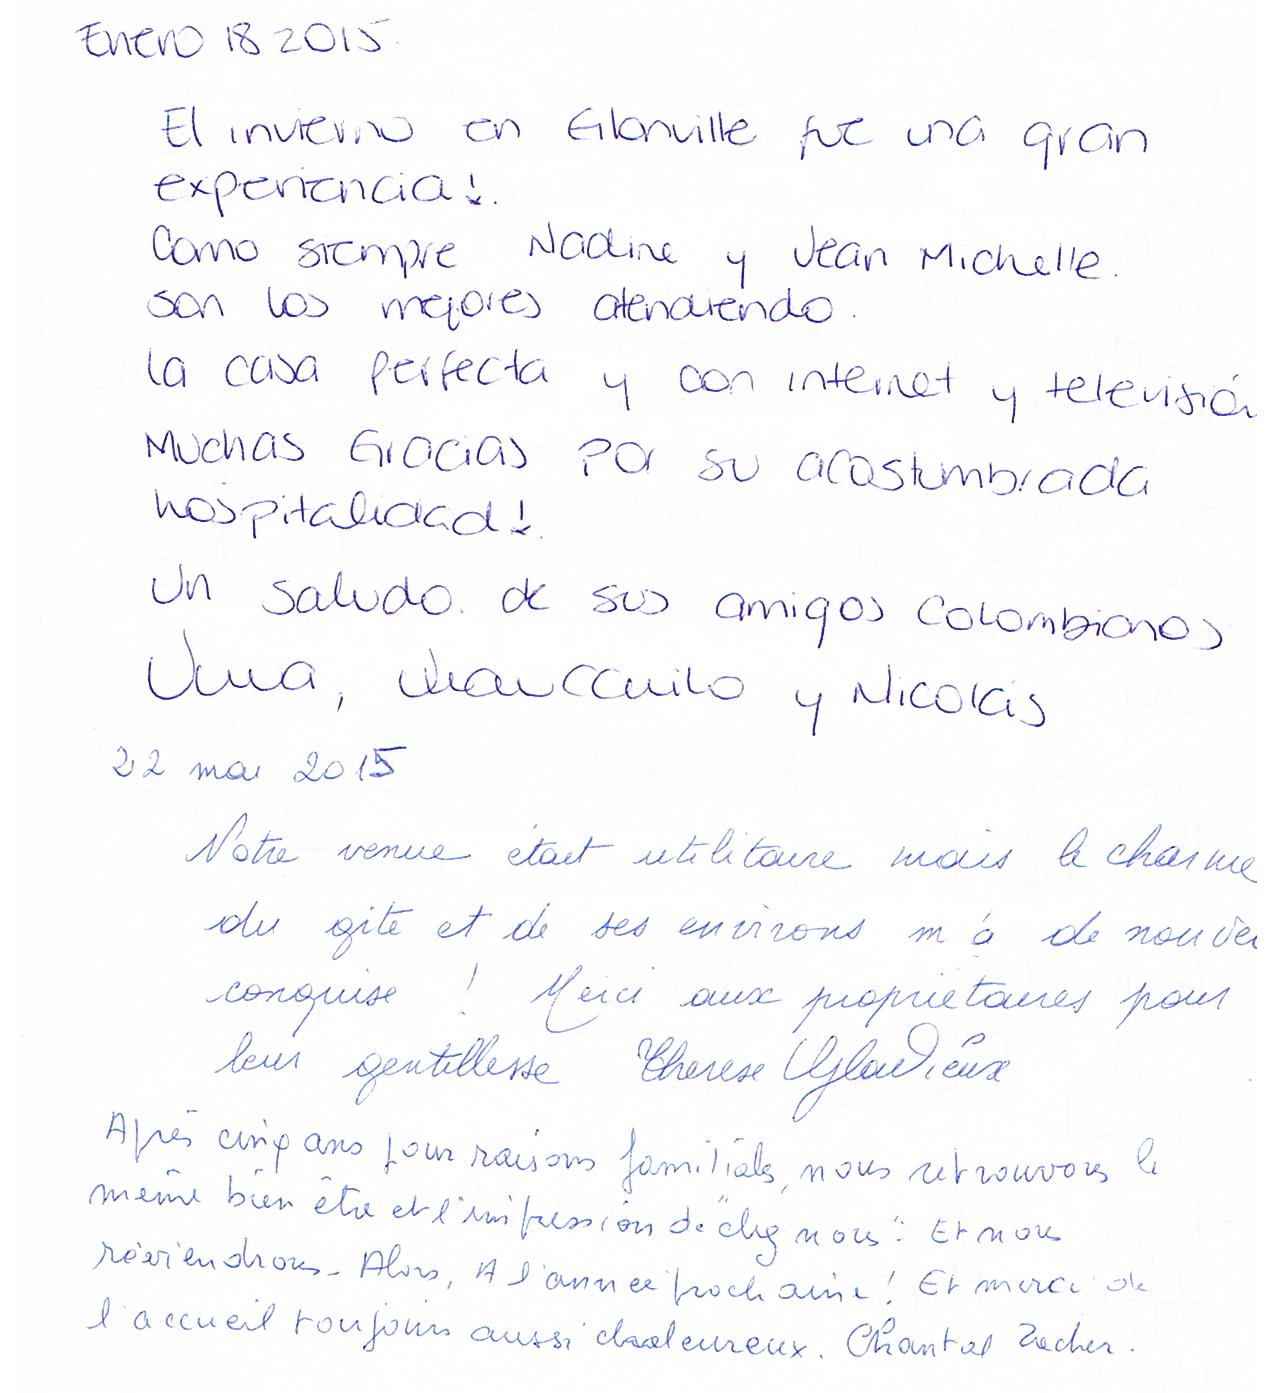 Enero 18 2015.
El invierno en Glanville fue una gran
experiencia!.
Como siempre Nadine y Jean Michelle.
son los mejores atendiendo.
La casa perfecta y con internet y televisión
Muchas Gracias Por su acostumbrada
hospitalidad!.
Un saludo. de sus amigos Colombianos
y Nicolás
22 mai 2015
Notre venue était utilitaire mais le charme
du gite et de ses environs m'a de
conquise ! Merci aux propriétaires pour
leur gentillesse Therese
Après cinq ans pour raisons familiales, nous retrouvons le
même bien être et l'impression de "chez nous". Et nous
reviendrons - Alors, A l'année prochaine ! Et merci de
l'accueil toujours aussi chaleureux. Chantal